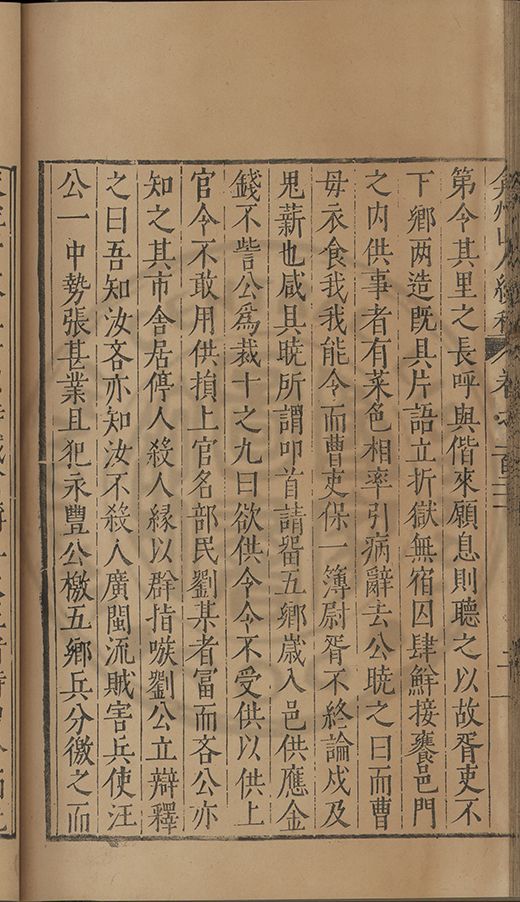 弇州山人續稿 卷之一百三
第今其里之長呼與偕來願息則聽之以故胥吏不
下鄉两造旣具片語立折獄無宿囚肆鮮接饔邑門
之内供事者有菜色相率引病辭去公曉之曰而曹
毋衣食我我能令而曹吏保一簿尉胥不終論戍及
鬼薪也咸具曉所謂叩首請畱五鄉歲入邑供應金
錢不訾公爲裁十之九曰欲供令令不受供以供上
官令不敢用供損上官名部民劉某者冨而吝公亦
知之其市舍居停人殺人縁以群指嗾劉公立辯釋
之曰吾知汝吝亦知汝不殺人廣閩流賊害兵使汪
公一中勢張甚業且犯永豐公檄五鄉兵分徼之而